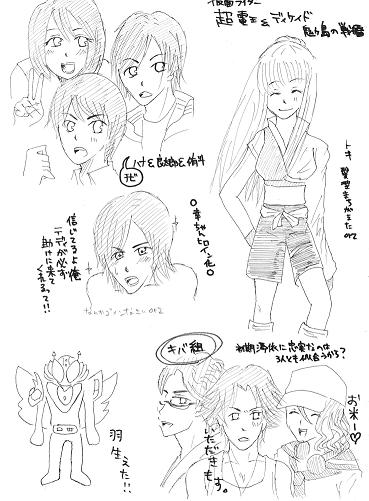 仮面ライダー
超電王&ディケイド
鬼ヶ島の戦艦
ハナ&良太郎&侑斗
チビ
トキ
髪型まちがえたorz
○幸ちゃんヒロイン化○
信じてるよ俺
テディが必ず
助けに来て
くれるって!!
なんかゴメンなさいorz
キバ組
初期憑依に忠実なのは
3人とも似合うから?
お米ー♡
いただきます。
羽生えた!!